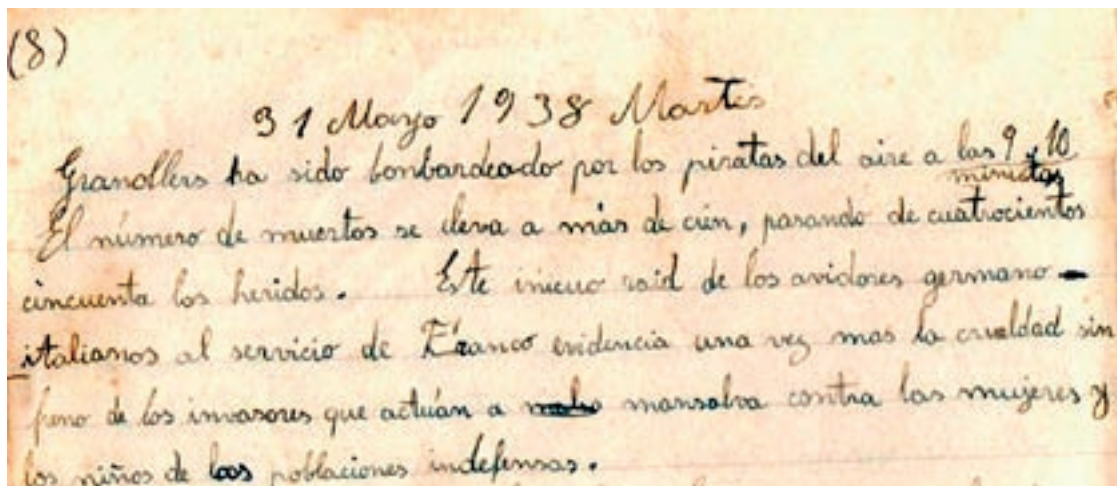 (8)
31 Mayo 1938 Martes
Granollers ha sido bombardeado por los piratas del aire a las 9 y 10
minutos
El número de muertos se eleva a más de cién, pasando de cuatrocientos
cincuenta los heridos. Este inicuo raid de los aviadores germano-
italianos al servicio de Franco evidencia una vez mas la crueldad sin
freno de los invasores que actúan a mansalva contra las mujeres y
los niños de las poblaciones indefensas.